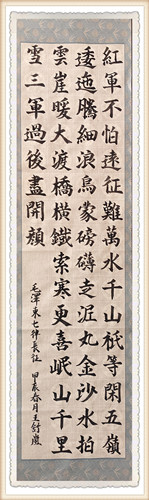 紅軍不怕遠征難萬水千山祇等閑五嶺
逶迤騰細浪烏蒙磅礴走泥丸金沙水拍
雲崖暖大渡橋橫鐵索寒更喜岷山千里
雪三軍過後盡開顏
毛澤東七律長征 甲辰春月王